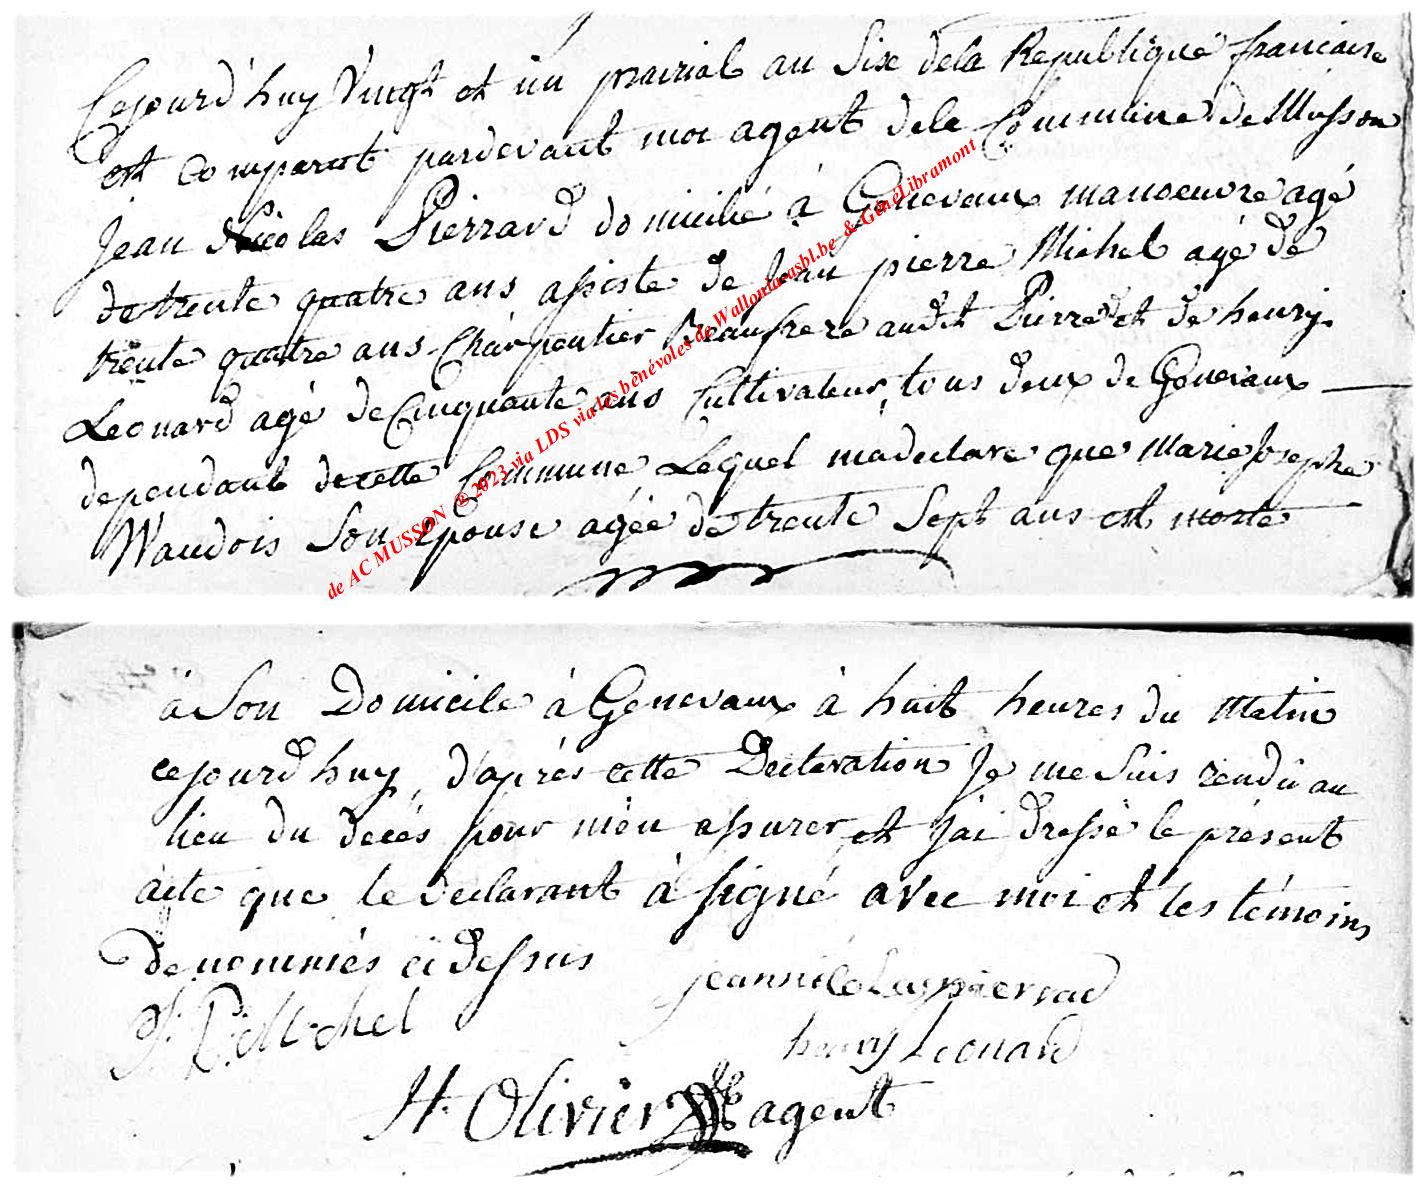 Cejourd'huy vingt et un prairial an Six dela Republique francaise
est comparut pardevant moi agent dela Commune de Musson
jean Nicolas Pierrard domicilié à Genevaux manoeuvre agé
de trente quatre ans assisté de jean pierre Michel agé de
trente quatre ans Charpentier Beaufrere audit Pierrard et de henry
Leonard agé de Cinquante ans Cultivateur, tous deux de Genevaux
dependant de cette Commune Lequel ma declaré que Marie Josephe
Waudois Son epouse agée de trente Sept ans est morte
de AC MUSSON © 2023 via LDS via les bénévoles de Wallonia asbl.be & GénéLibramont
à Son Domicile à Genevaux à huit heures du Matin
cejourd huy, d'aprés cette Declaration Je me Suis rendû au
lieu du decés pour m'en assurer et j'ai dressé le présent
acte que le declarant à signé avec moi et les témoins
denommés ci dessus
jeannicolas pierrard
J. P. Michel
henry Leonard
H. Olivier agent